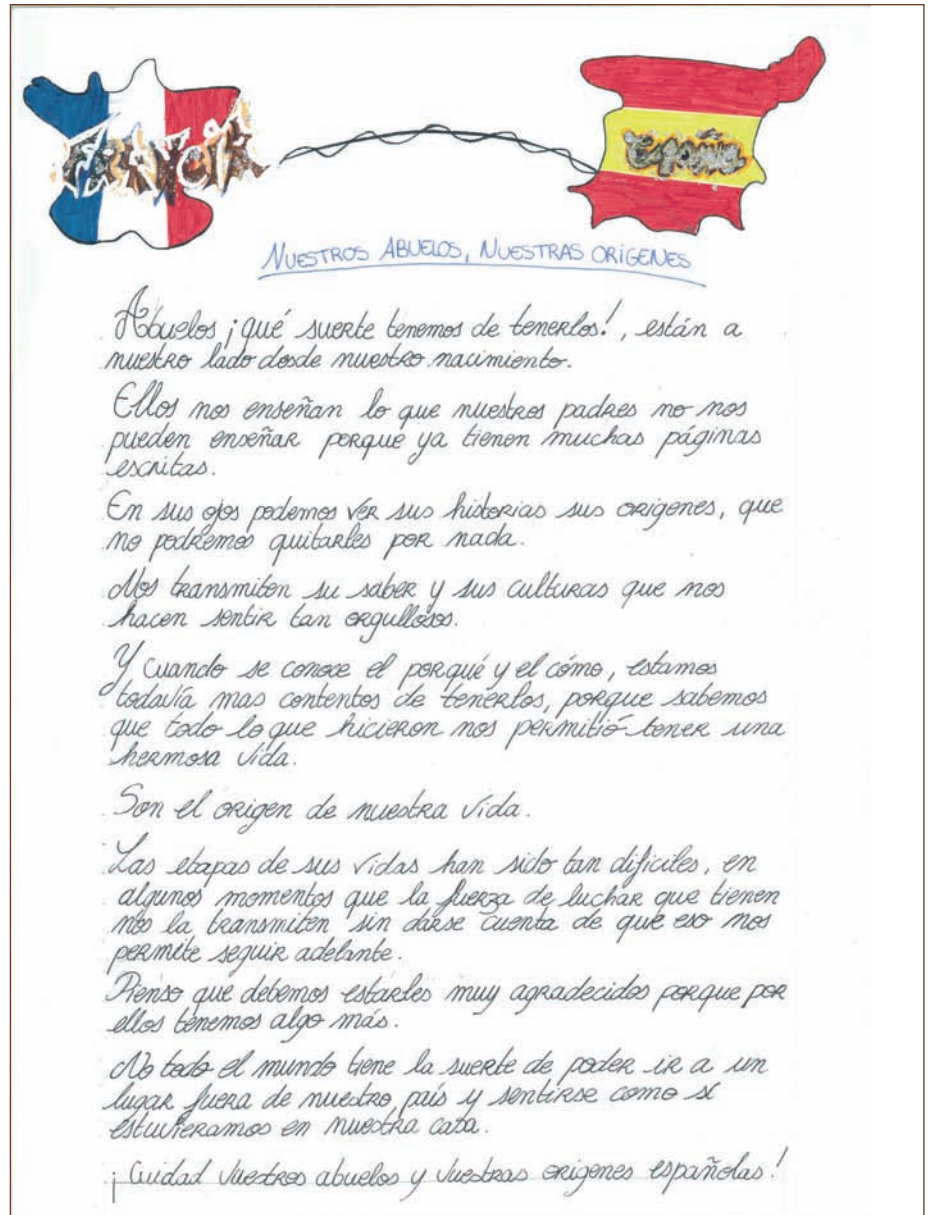 Francia
España
NUESTROS ABUELOS, NUESTRAS ORIGENES
Abuelos ¡qué suerte tenemos de tenerlos!, están a
nuestro lado desde nuestro nacimiento.
Ellos nos enseñan lo que nuestros padres no nos
pueden enseñar porque ya tienen muchas páginas
escritas.
En sus ojos podemos ver sus historias sus origenes, que
no podremos quitarles por nada.
Nos transmiten su saber y sus culturas que nos
hacen sentir tan orgullosos.
Y cuando se conoce el porqué y el cómo, estamos
todavía mas contentos de tenerlos, porque sabemos
que todo lo que hicieron nos permitió tener una
hermosa vida.
Son el origen de nuestra vida.
Las etapas de sus vidas han sido tan dificiles, en
algunos momentos que la fuerza de luchar que tienen
nos la transmiten sin darse cuenta de que eso nos
permite seguir adelante.
Pienso que debemos estarles muy agradecidos porque por
ellos tenemos algo más.
No todo el mundo tiene la suerte de poder ir a un
lugar fuera de nuestro país y sentirse como si
estuvieramos en nuestra casa.
¡Cuidad vuestros abuelos y vuestras origenes españolas!